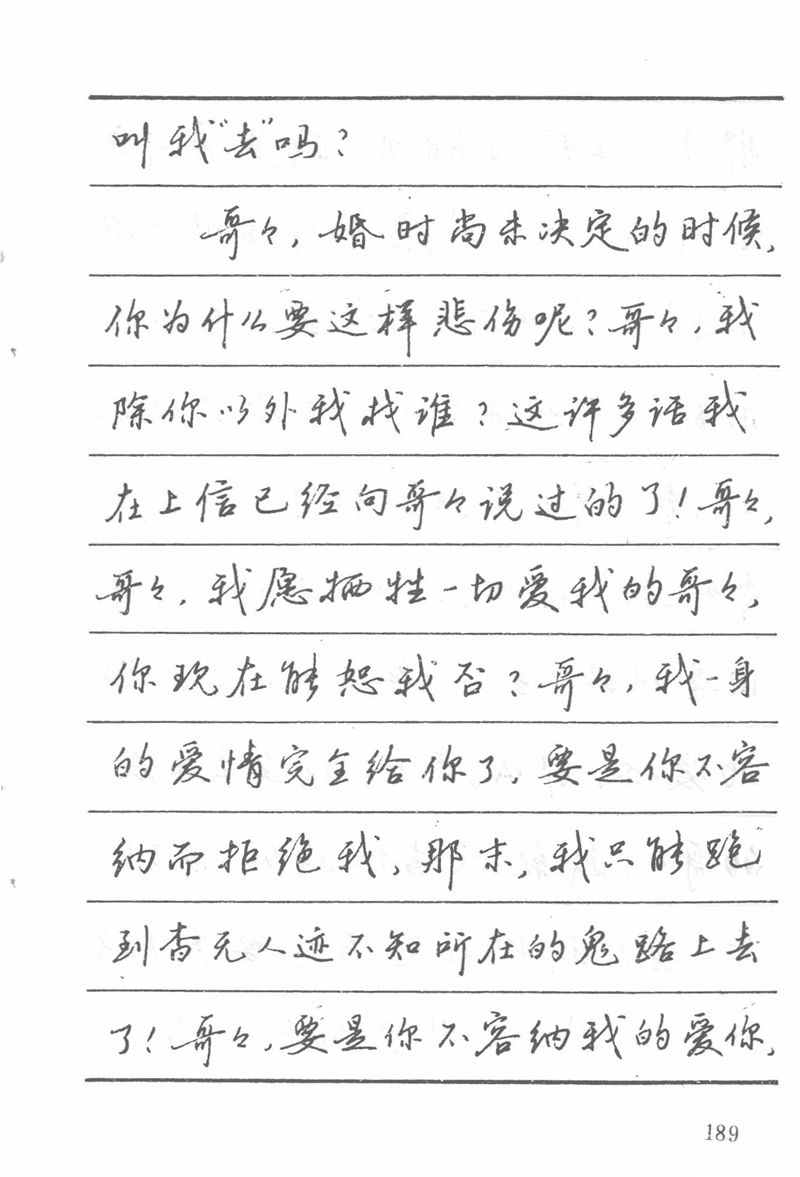 叫我“去”吗？
哥々，婚时尚未决定的时候，
你为什么要这样悲伤呢？哥々，我
除你以外我找谁？这许多话我
在上信已经向哥々说过的了！哥々，
哥々，我愿牺牲一切爱我的哥々，
你现在能恕我否？哥々，我一身
的爱情完全给你了，要是你不容
纳而拒绝我，那末，我只能跑
到杳无人迹不知所在的鬼路上去
了！哥々，要是你不容纳我的爱你，
189